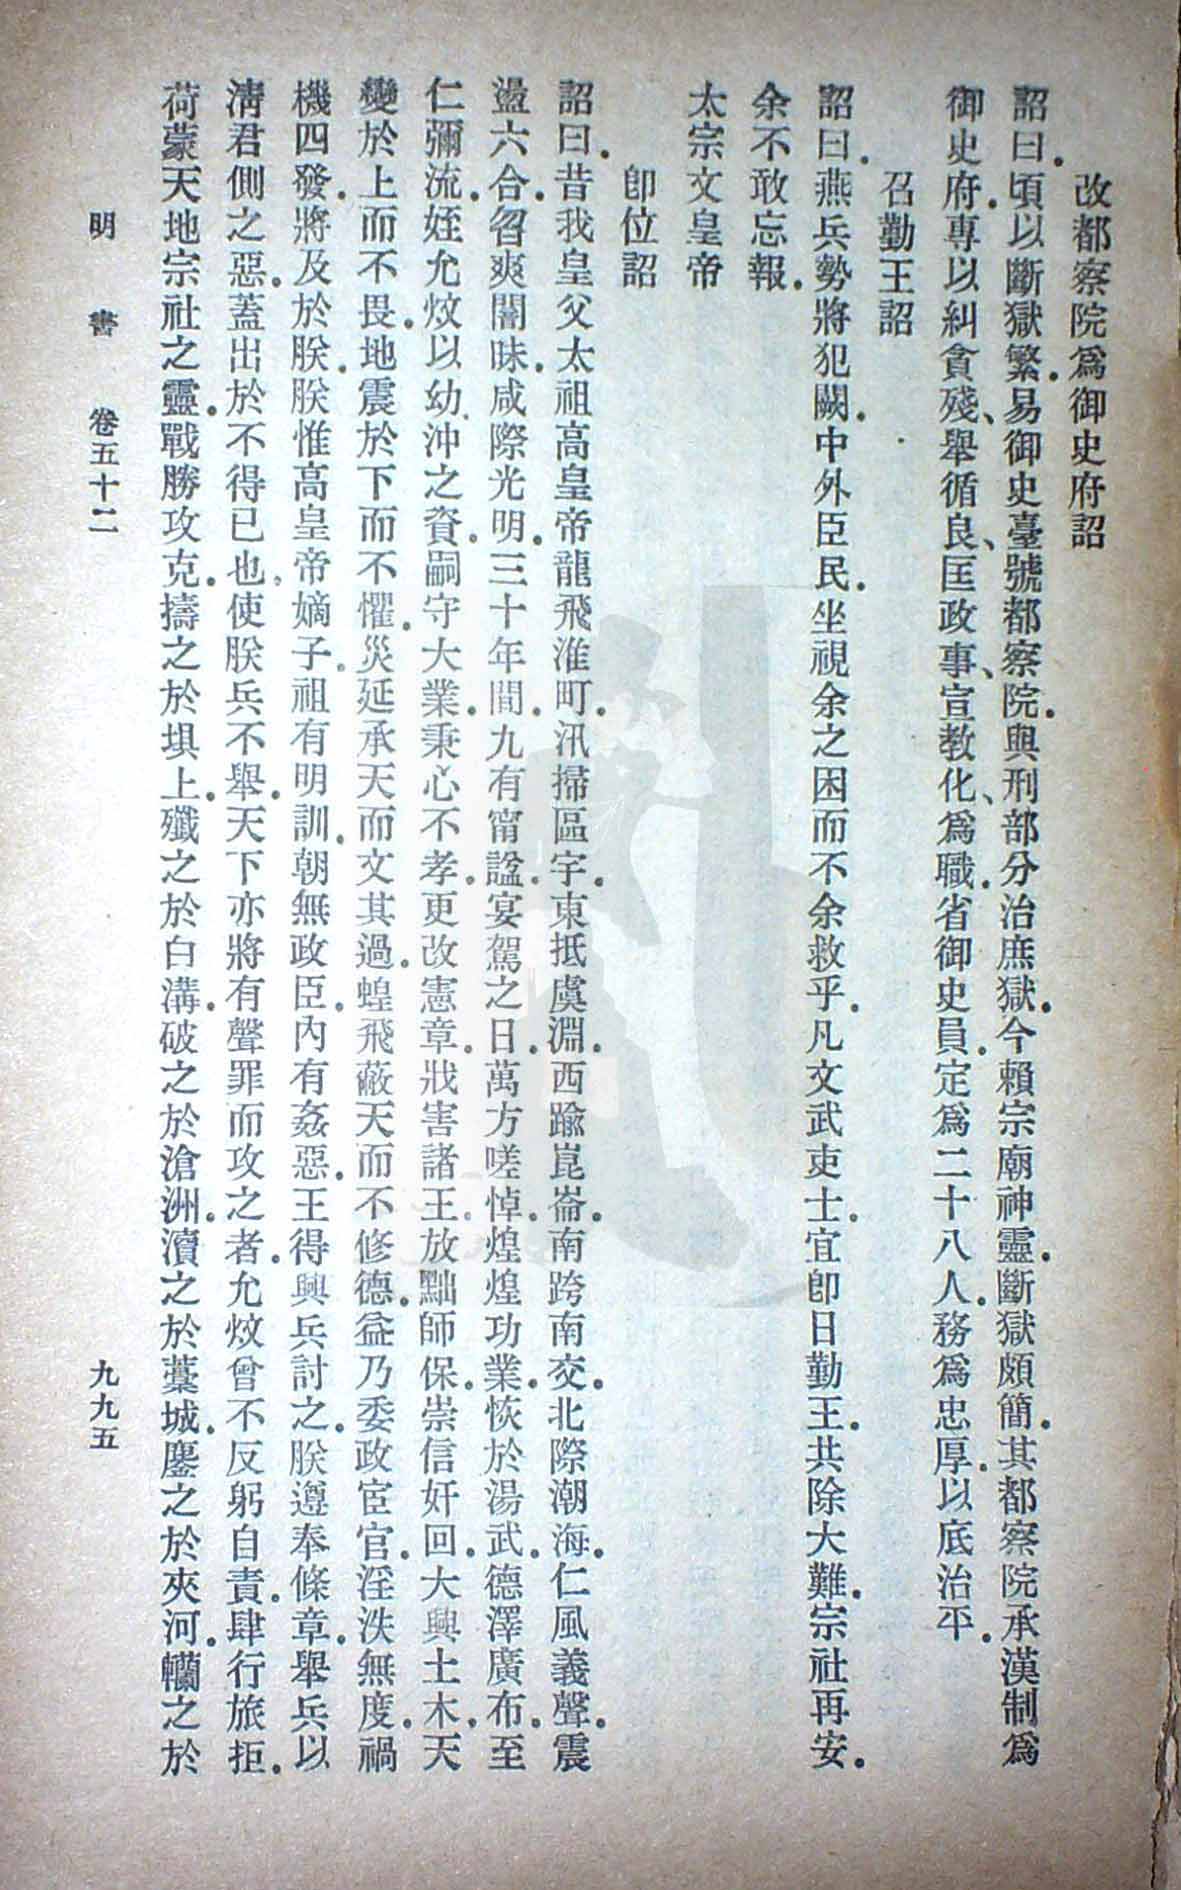 改都察院爲御史府詔
詔曰.頃以斷獄繁.易御史臺號都察院.與刑部分治庶獄.今賴宗廟神靈.斷獄頗簡.其都察院承漢制爲
御史府.專以糾貪殘、舉循良、匡政事、宣教化、爲職.省御史員.定爲二十八人.務爲忠厚.以底治平.
召勤王詔
詔曰.燕兵勢將犯闕.中外臣民.坐視余之困而不余救乎.凡文武吏士.宜卽日勤王.共除大難.宗社再安.
余不敢忘報.
太宗文皇帝
卽位詔
詔曰.昔我皇父太祖高皇帝龍飛淮町.汛掃區宇.東抵虞淵.西踰崑崙.南跨南交.北際潮海.仁風義聲.震
盪六合.曶爽闇昧.咸際光明.三十年間.九有甯謐.宴駕之日.萬方嗟悼.煌煌功業.恢於湯武.德澤廣布.至
仁彌流.姪允炆以幼沖之資.嗣守大業.秉心不孝.更改憲章.戕害諸王.放黜師保.崇信奸回.大興土木.天
變於上而不畏.地震於下而不懼.災延承天而文其過.蝗飛蔽天而不修德.益乃委政宦官.淫泆無度.禍
機四發.將及於朕.朕惟高皇帝嫡子.祖有明訓.朝無政臣.內有姦惡.王得興兵討之.朕遵奉條章.舉兵以
淸君側之惡.蓋出於不得已也.使朕兵不舉.天下亦將有聲罪而攻之者.允炆曾不反躬自責.肆行旅拒.
荷蒙天地宗社之靈.戰勝攻克.擣之於埧上.殲之於白溝.破之於滄洲.瀆之於藁城.鏖之於夾河.轥之於
明書　卷五十二　九九五